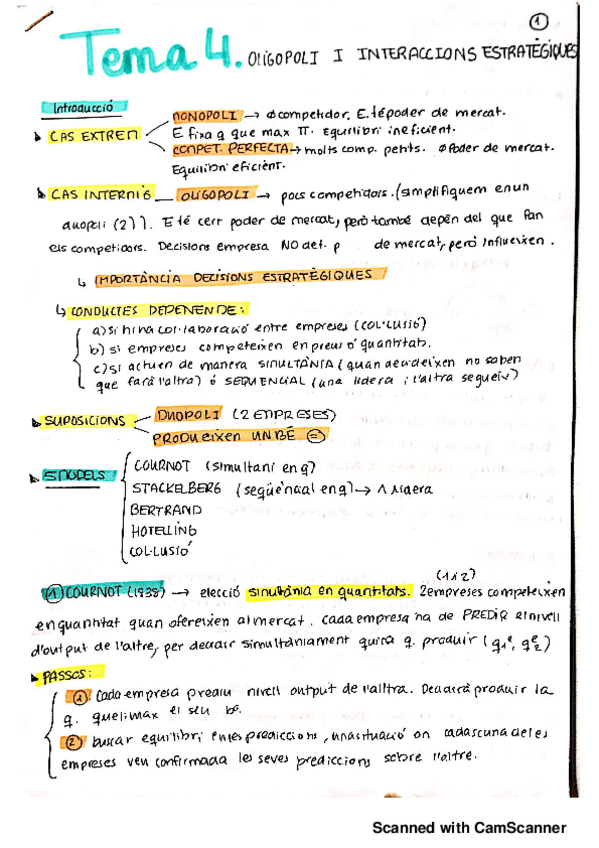 1
Tema 4. OLIGOPOLI I INTERACCIONS ESTRATÈGIQUES
Introducció
CAS EXTREM
MONOPOLI → Ø competidor. E. té poder de mercat.
E fixa q que max π. Equilibri ineficient.
COMPET. PERFECTA → molts comp. petits. Ø Poder de mercat.
Equilibri eficient.
CAS INTERMIG — OLIGOPOLI → pocs competidors. (simplifiquem en un
duopoli (2)). E té cert poder de mercat, però també depèn del que fan
els competidors. Decisions empresa NO det. p de mercat, però influeixen.
↳ IMPORTÀNCIA DECISIONS ESTRATÈGIQUES
↳ CONDUCTES DEPENEN DE:
a) si hi ha col·laboració entre empreses (COL·LUSIÓ)
b) si empreses competeixen en preus ó quantitats.
c) si actuen de manera SIMULTÀNIA (quan decideixen no saben
que farà l'altra) ó SEQUENCIAL (una lidera i l'altra segueix)
SUPOSICIONS
DUOPOLI (2 EMPRESES)
PRODUEIXEN UN BÉ =
5 MODELS
COURNOT (simultani en q)
STACKELBERG (seqüèncial en q) → 1 lidera
BERTRAND
HOTELLING
COL·LUSIÓ
1 COURNOT (1838) → elecció simultània en quantitats. 2 empreses competeixen
(1 i 2)
en quantitat quan ofereixen al mercat. Cada empresa ha de PREDIR el nivell
d'output de l'altre, per decidir simultàniament quina q. produir (q₁ᵉ, q₂ᵉ)
PASSOS:
1. Cada empresa prediu nivell output de l'altra. Decidirà produir la
q. que li max el seu bº.
2) buscar equilibri en les prediccions, una situació on cadascuna de les
empreses veu confirmada les seves prediccions sobre l'altre.
Scanned with CamScanner